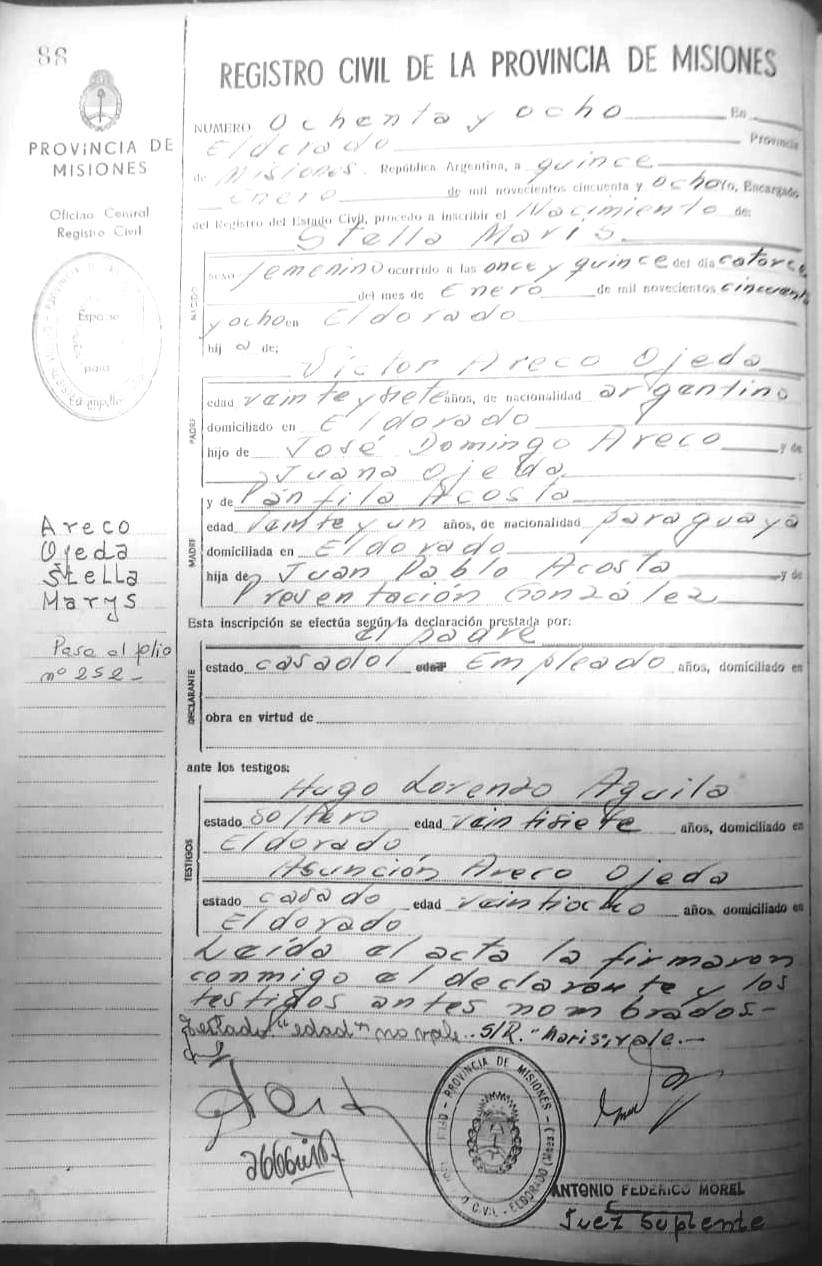 88
PROVINCIA DE
MISIONES
Oficina Central
Registro Civil
Espacio
para
Estampilla
Areco
Ojeda
Stella
Marys
Pasa al folio
nº 252-
REGISTRO CIVIL DE LA PROVINCIA DE MISIONES
NUMERO Ochenta y ocho En
Eldorado Provincia
de Misiones. República Argentina, a quince
Enero de mil novecientos cincuenta y ocho yo, Encargado
del Registro del Estado Civil, procedo a inscribir el Nacimiento de:
Stella Maris
NACIDO
sexo femenino ocurrido a las once y quince del día catorce
del mes de Enero de mil novecientos cincuenta
y ocho en Eldorado
hij a de;
Victor Areco Ojeda
PADRE
edad veinte y siete años, de nacionalidad argentino
domiciliado en Eldorado
hijo de José Domingo Areco y de
Juana Ojeda
y de Pánfila Acosta
MADRE
edad veinte y un años, de nacionalidad paraguaya
domiciliada en Eldorado
hija de Juan Pablo Acosta y de
Presentación González
Esta inscripción se efectúa según la declaración prestada por:
el padre
DECLARANTE
estado casado edad Empleado años, domiciliado en
obra en virtud de
ante los testigos:
Hugo Lorenzo Aguila
TESTIGOS
estado soltero edad veintisiete años, domiciliado en
Eldorado
Asunción Areco Ojeda
estado casado edad veintiocho años, domiciliado en
Eldorado
Leída el acta la firmaron
conmigo el declarante y los
testigos antes nombrados-
Testado "edad" no vale. S/R. "Maris", vale.-
PROVINCIA DE MISIONES - ELDORADO (Mnes.)
ANTONIO FEDERICO MOREL
Juez Suplente